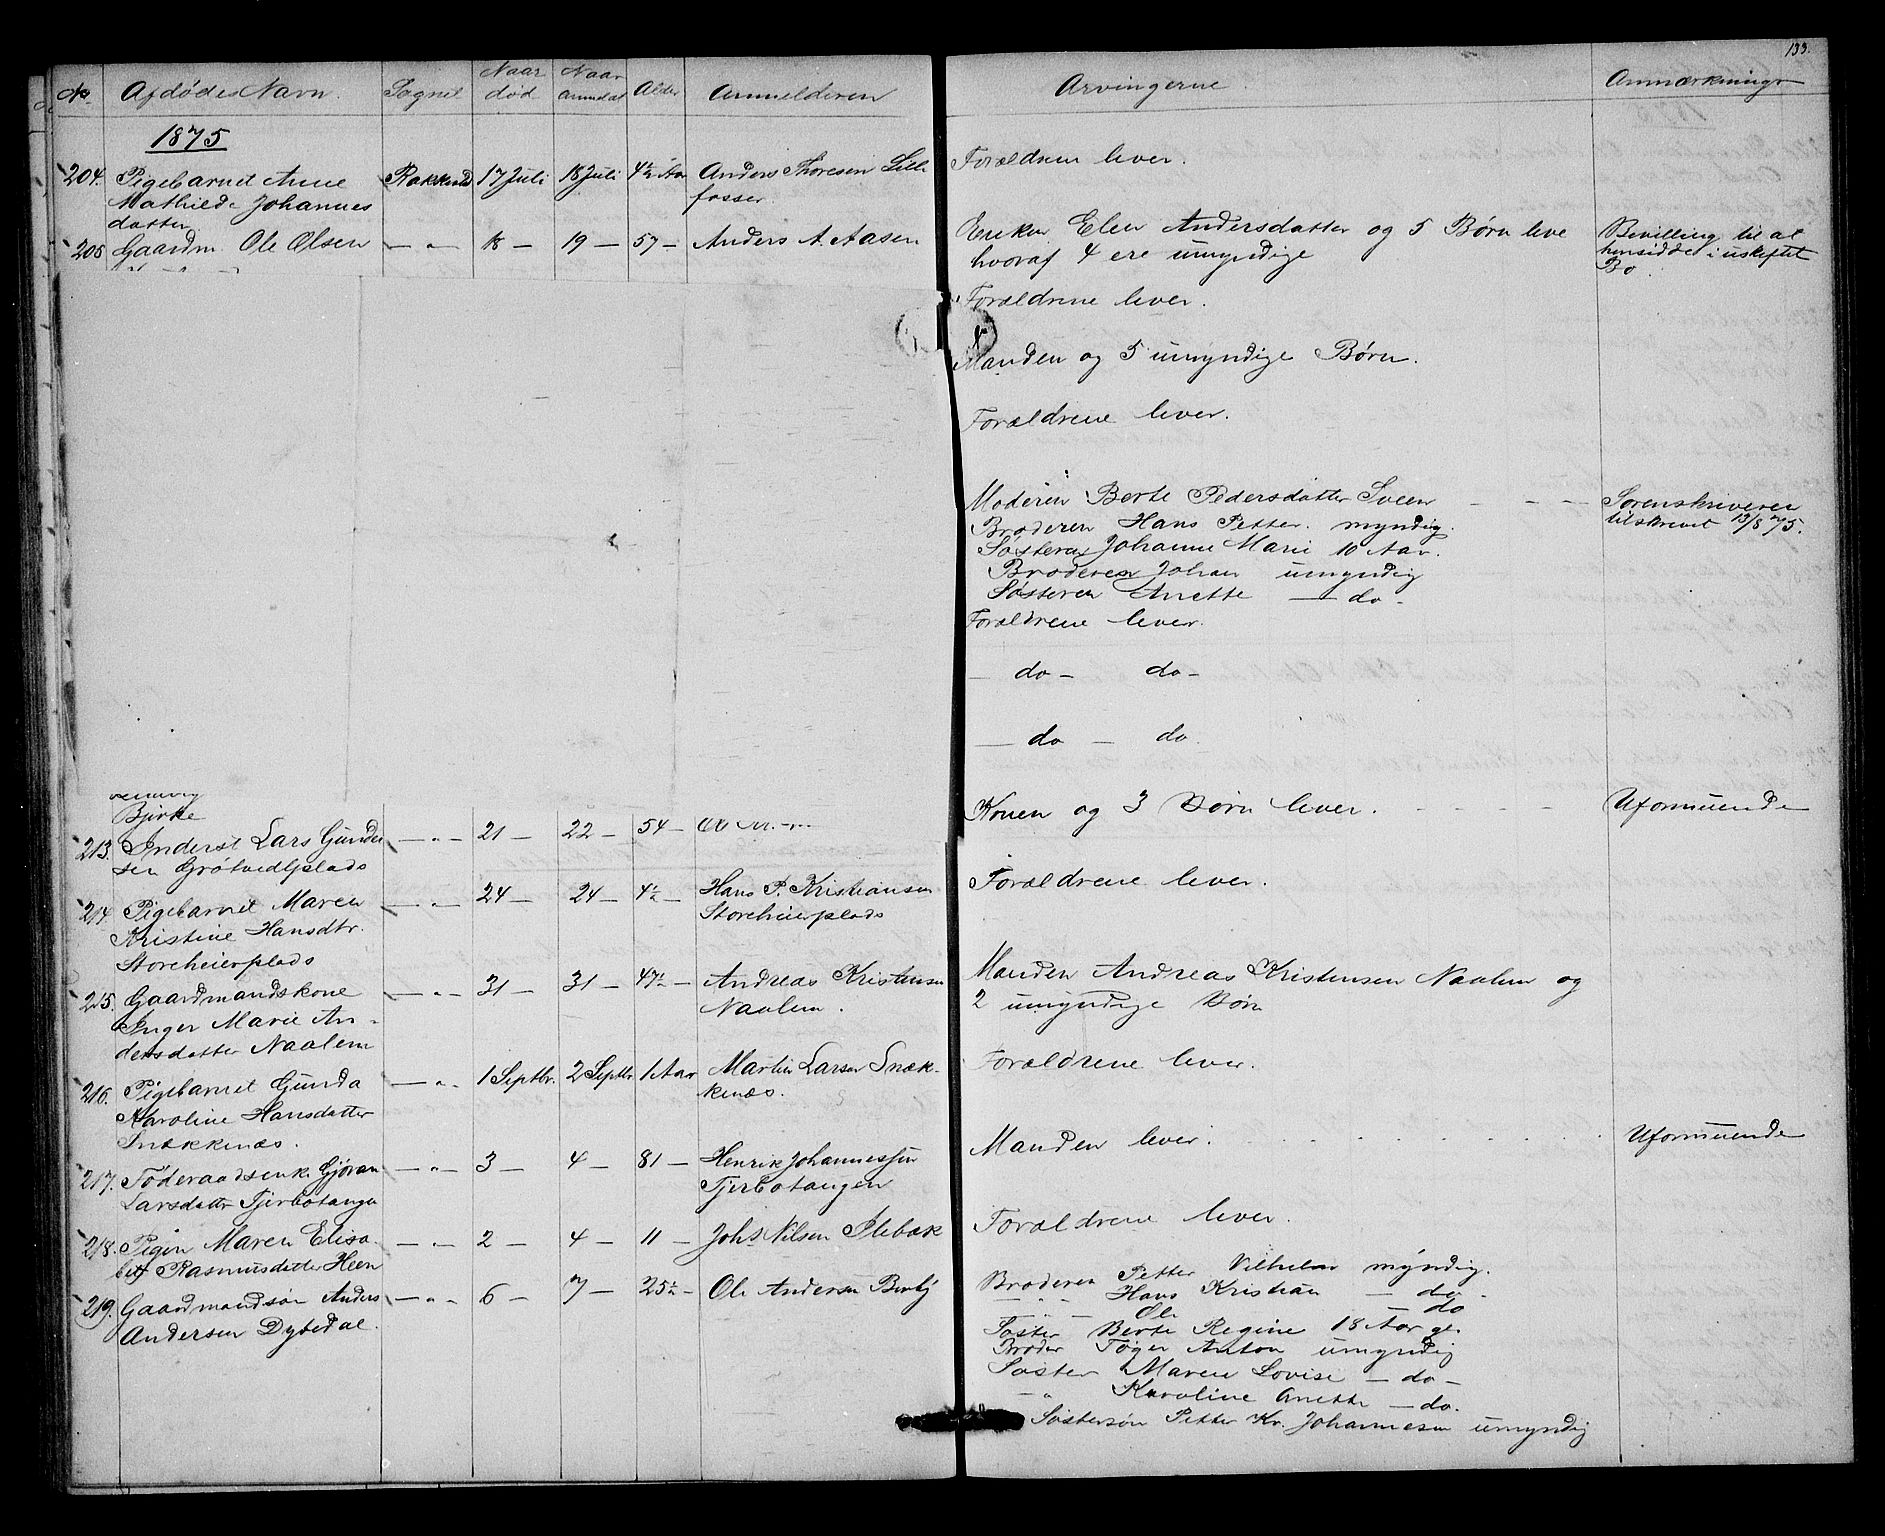 133.
No. Afdødes Navn. Sognet Naar død Naar anmeldt Alder Anmelderen Arvingerne Anmærkninger
1875
204. Pigebarnet Anne Rakkestad 17 Juli 18 Juli 4½ Aar Anders Thoresen Lille Forældrene lever.
Mathilde Johannes fosser.
datter
205 Gaardm. Ole Olsen — " — 18 — 19 — 57 — Anders A. Aasen Enken Elen Andersdatter og 5 Børn leve Bevilling til at
hvoraf 4 ere umyndige hensidde i uskiftet
Bo
Forældrene lever.
Manden og 5 umyndige Børn.
Forældrene lever.
Moderen Berte Pedersdatter Sveen — — — Sorenskriveren
Broderen Hans Petter. myndig. tilskrevet 13/8 75.
Søsteren Johanne Marie 10 Aar.
Broderen Johan umyndig
Søsteren Anette — do -
Forældrene lever.
— do — do -
— do — do.
Bjørke
Konen og 3 Børn lever. Uformuende
213. Inderst Lars Gunder — " — 21 — 22 — 54 —
sen Grøtvedtplads
214. Pigebarnet Maren — " — 24 — 24 — 4½ — Hans P. Kristiansen Forældrene lever.
Kristine Hansdtr. Storeheierplads
Storeheierplads
215. Gaardmandskone — " — 31 — 31 — 47½ — Andreas Kristensen Manden Andreas Kristensen Naalem og
Inger Marie An- Naalem. 2 umyndige Børn
dersdatter Naalem
216. Pigebarnet Gunda — " — 1 Septbr. 2 Septbr. 1 Aar Martin Larsen Snæk- Forældrene lever.
Karoline Hansdatter kenæs.
Snækkenæs.
217. Føderaadsenke Gjøran — " — 3 — 4 — 81 — Henrik Johannessen Manden lever. Uformuende
Larsdatter Tjerbotangen Tjerbotangen
218. Pigen Maren Elisa- — " — 2 — 4 — 11 — Johs Nilsen Slebæk Forældrene lever.
bet Rasmusdatter Heen
219. Gaardmandsøn Anders — " — 6 — 7 — 25½ — Ole Andersen Berby Broderen Petter Vilhelm myndig.
Andersen Dybedal. — " — Hans Kristian — do -
— " — Ole — do
Søster Berte Regine 18 Aar gl.
Broder Føger Anton umyndig
Søster Maren Lovise — do -
— " Karoline Anette — do.
Søstersøn Petter Kr. Johannesen umyndig